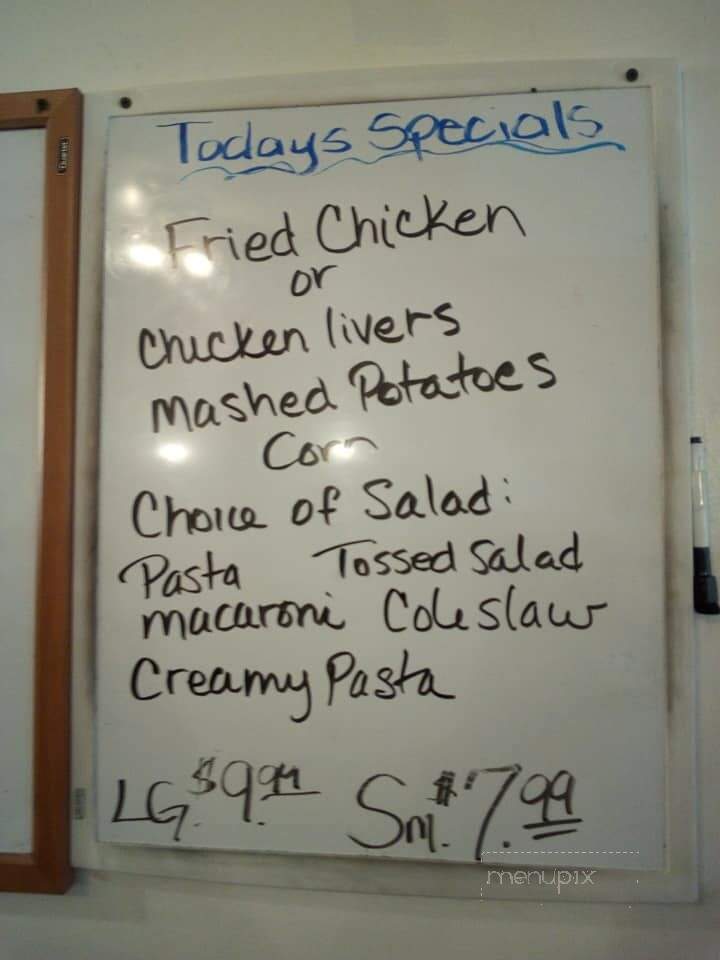 Todays Specials
Fried Chicken
or
Chicken livers
Mashed Potatoes
Corn
Choice of Salad:
Pasta Tossed Salad
macaroni Coleslaw
Creamy Pasta
LG. $9.99 Sm. $7.99
menupix